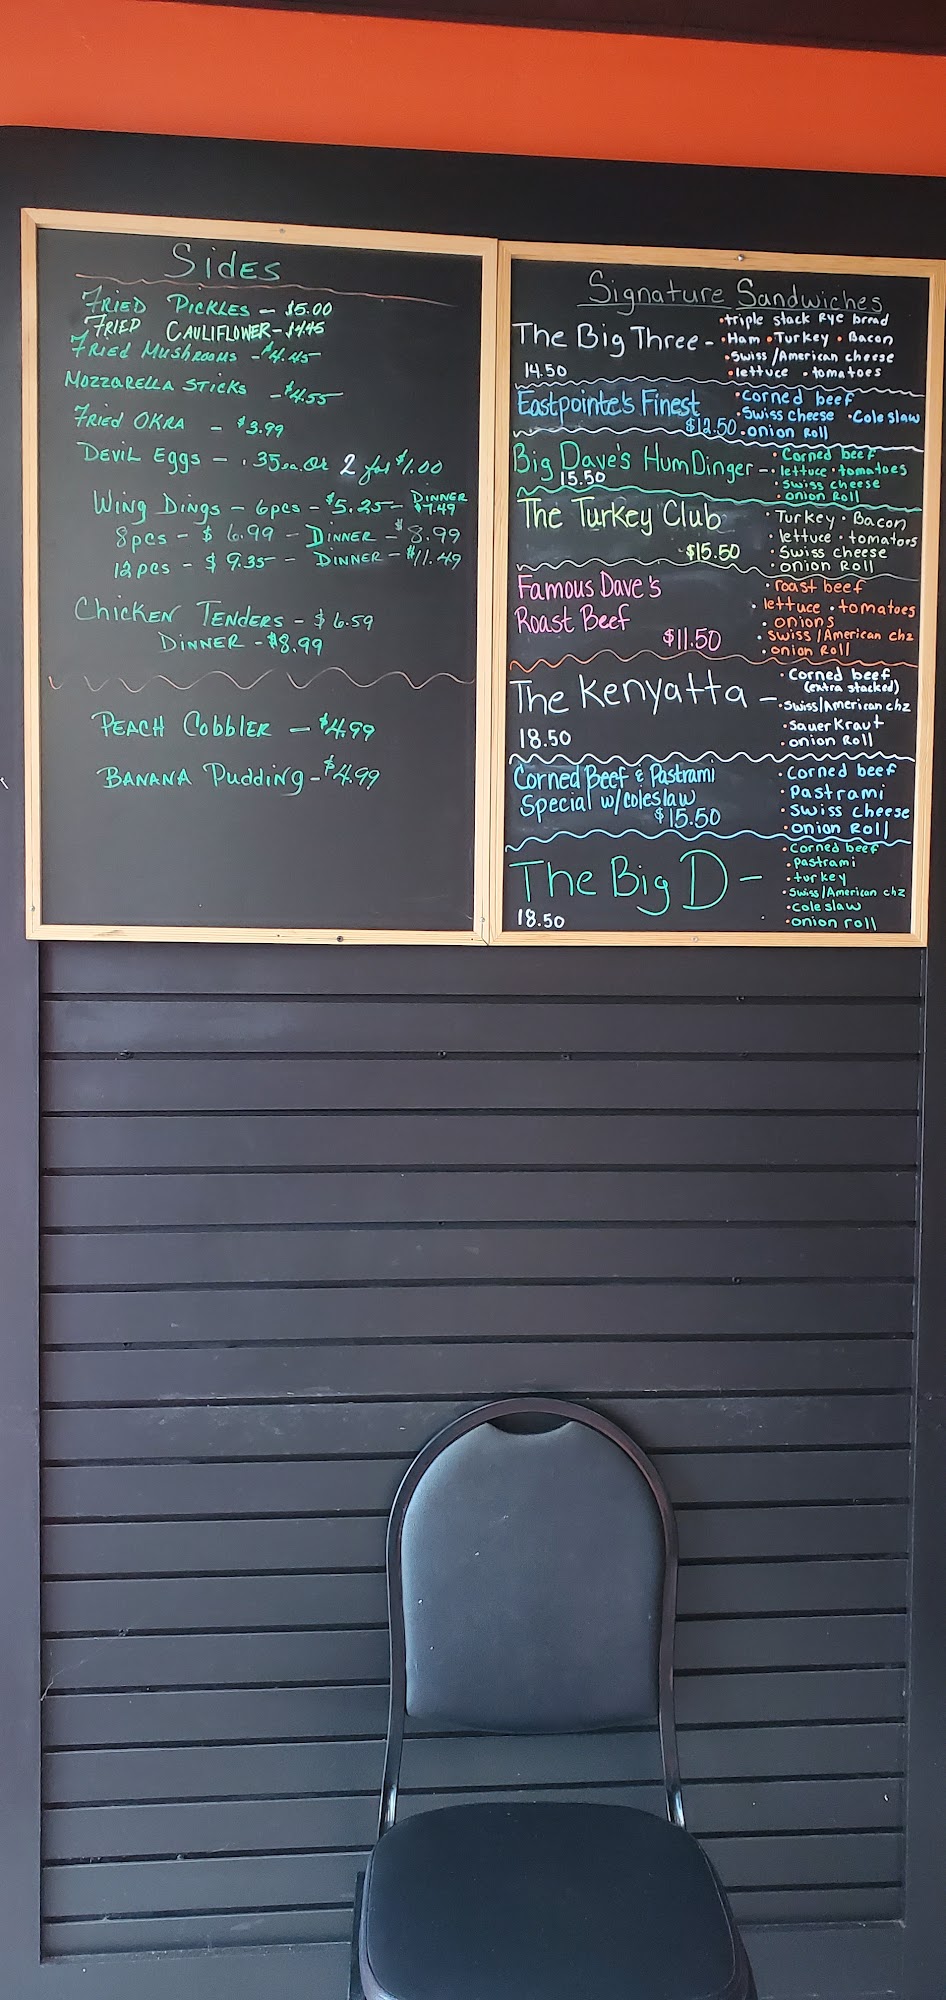 Sides
Fried Pickles - $5.00
Fried Cauliflower - $4.45
Fried Mushrooms - $4.45
Mozzarella Sticks - $4.55
Fried Okra - $3.99
Devil Eggs - .35ea. or 2 for $1.00
Wing Dings - 6pcs - $5.25 - Dinner $7.49
8pcs - $6.99 - Dinner - $8.99
12pcs - $9.35 - Dinner - $11.49
Chicken Tenders - $6.59
Dinner - $8.99
Peach Cobbler - $4.99
Banana Pudding - $4.99
Signature Sandwiches
The Big Three -
14.50
• triple stack Rye bread
• Ham • Turkey • Bacon
• Swiss/American cheese
• lettuce • tomatoes
Eastpointe's Finest
$12.50
• Corned beef
• Swiss cheese • Cole slaw
• onion Roll
Big Dave's HumDinger -
15.50
• Corned beef
• lettuce • tomatoes
• Swiss cheese
• onion Roll
The Turkey Club
$15.50
• Turkey • Bacon
• lettuce • tomatoes
• Swiss cheese
• onion Roll
Famous Dave's
Roast Beef
$11.50
• roast beef
• lettuce • tomatoes
• onions
• Swiss/American chz
• onion Roll
The Kenyatta -
18.50
• Corned beef
(extra stacked)
• Swiss/American chz
• Sauer Kraut
• onion Roll
Corned Beef & Pastrami
Special w/coleslaw
$15.50
• Corned beef
• Pastrami
• Swiss Cheese
• onion Roll
The Big D -
18.50
• Corned beef
• pastrami
• turkey
• Swiss/American chz
• Cole slaw
• onion roll